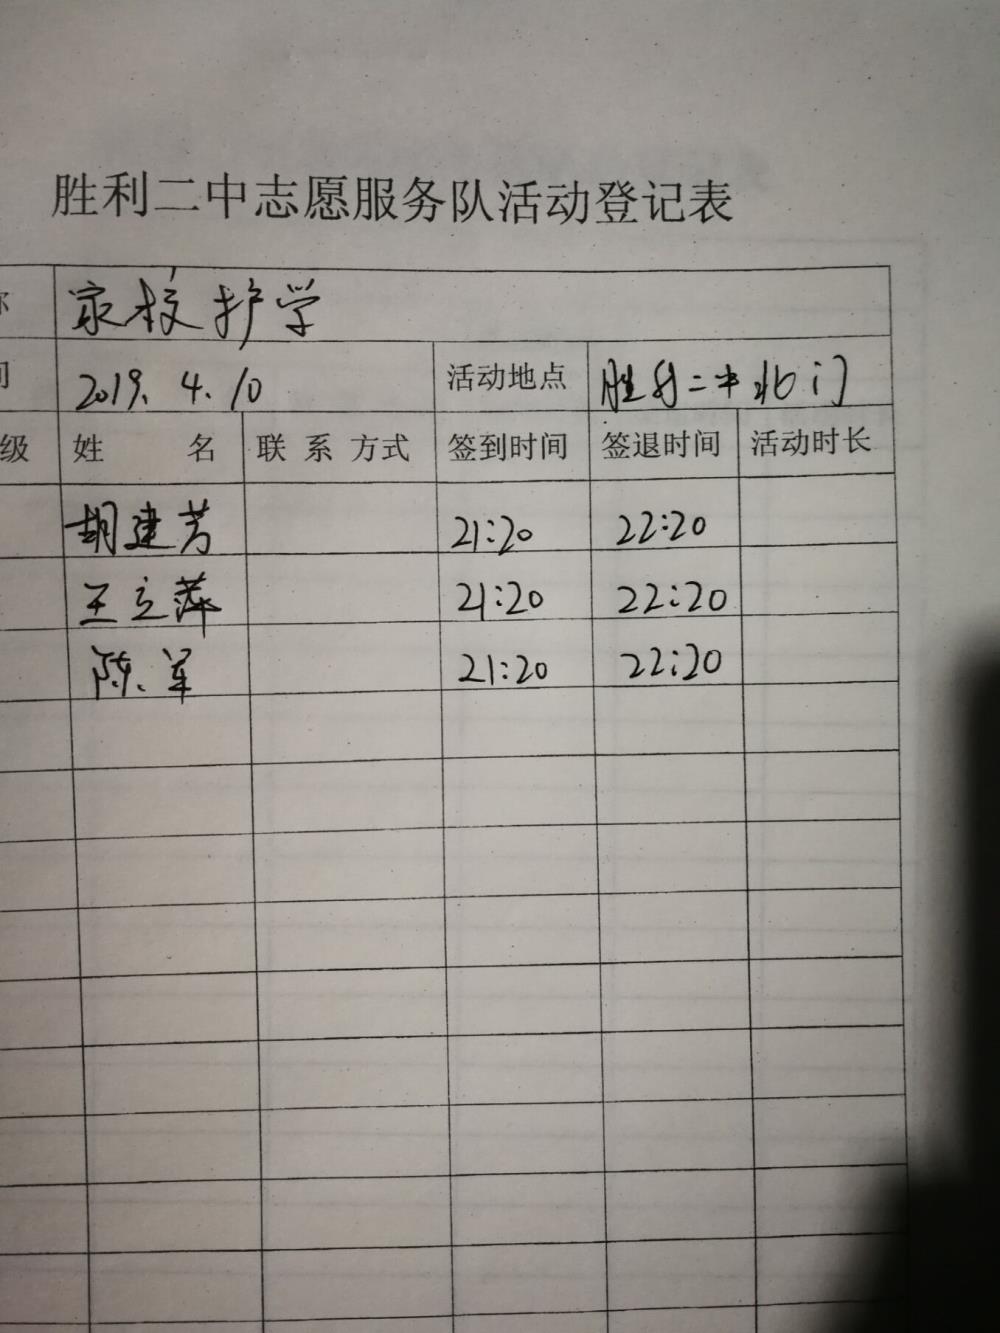 胜利二中志愿服务队活动登记表
称 家校护学
间 2019.4.10 活动地点 胜利二中北门
级 姓 名 联系方式 签到时间 签退时间 活动时长
胡建芳 21:20 22:20
王立萍 21:20 22:20
陈军 21:20 22:20